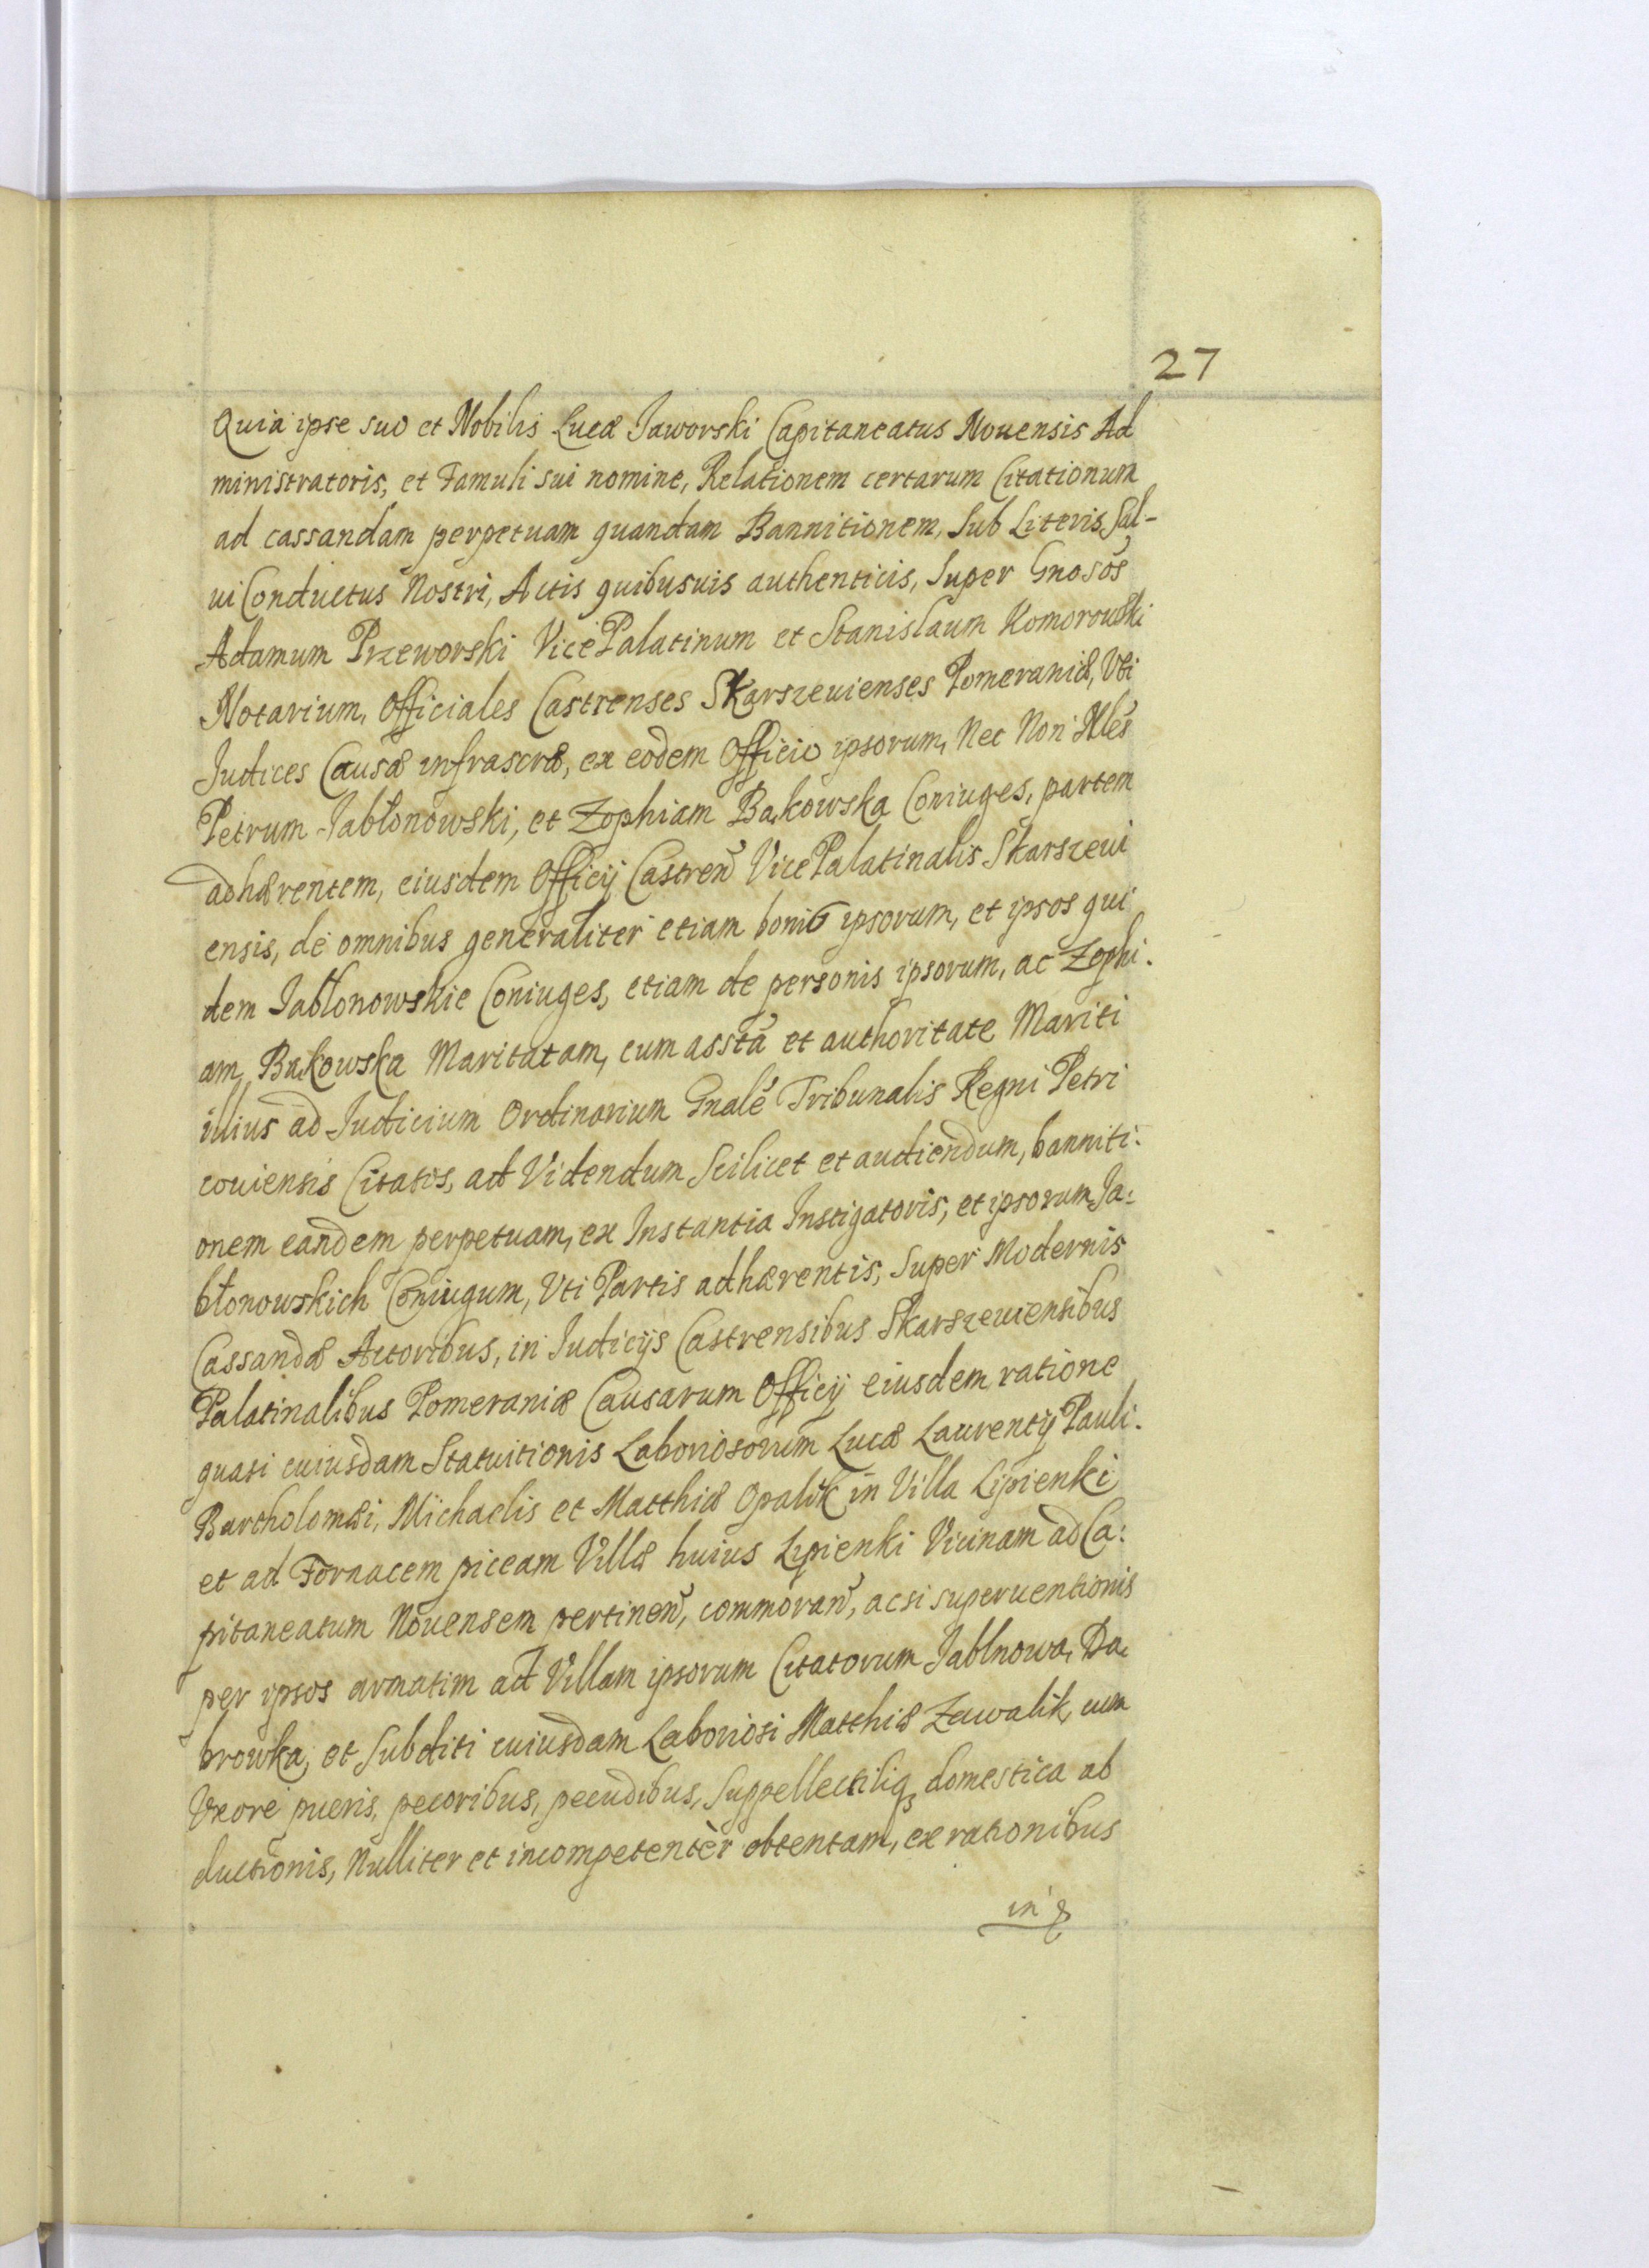 27
Quia ipse suo et Nobilis Lucæ Jaworski Capitaneatus Nouensis Ad
ministratoris, et Famuli sui nomine, Relationem certarum Citationum
ad cassandam perpetuam quandam Bannitionem, Sub Literis Sal-
ui Conductus Nostri, Actis quibusuis authenticis, Super Gnosos
Adamum Przeworski Vice Palatinum et Stanislaum Komorowski
Notarium, Officiales Castrenses Skarszeuienses Pomeraniæ, Vti
Judices Causæ infrascræ, ex eodem Officio ipsorum, Nec Non Nles
Petrum Jabłonowski, et Zophiam Bąkowska Coniuges, partem
adhærentem, eiusdem Officij Castren̄ Vice Palatinalis Skarszeui
ensis, de omnibus generaliter etiam bonis ipsorum, et ipsos qui
dem Jabłonowskie Coniuges, etiam de personis ipsorum, ac Zophi.
am Bąkowska Maritatam, cum assta et authoritate Mariti
illius ad Judicium Ordinarium Gnale Tribunalis Regni Petri
couiensis Citatos, ad Videndum Scilicet et audiendum, banniti:
onem eandem perpetuam, ex Instantia Instigatoris, et ipsorum Ja:
błonowskich Coniugum, Vti Partis adhærentis, Super Modernis
Cassandæ Actoribus, in Judicijs Castrensibus Skarszeuiensibus
Palatinalibus Pomeraniæ Causarum Officij eiusdem, ratione
quasi cuiusdam Statuitionis Laboriosorum Lucæ Laurentij Pauli.
Bartholomæi, Michaelis et Matthiæ Opalik in Villa Lipienki
et ad Fornacem piceam Villæ huius Lipienki Vicinam ad Ca:
pitaneatum Nouensem pertinen̄, commoran̄, acsi superuentionis
per ipsos armatim ad Villam ipsorum Citatorum Jablnowa, Dą
browka, et Subditi cuiusdam Laboriosi Matthiæ Zawalik, cum
Vxore pueris, pecoribus, pecudibus, Suppellectiliq; domestica ab
ductionis, Nulliter et incompetentèr obtentam, ex rationibus
in